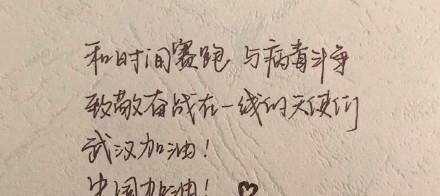 和时间赛跑 与病毒斗争
致敬奋战在一线的天使们
武汉加油!
中国加油! ♥